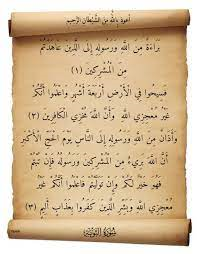 أعوذ بالله من الشيطان الرجيم
بَرَاءَةٌ مِنَ اللَّهِ وَرَسُولِهِ إِلَى الَّذِينَ عَاهَدْتُمْ
مِنَ الْمُشْرِكِينَ (١)
فَسِيحُوا فِي الْأَرْضِ أَرْبَعَةَ أَشْهُرٍ وَاعْلَمُوا أَنَّكُمْ
غَيْرُ مُعْجِزِي اللَّهِ وَأَنَّ اللَّهَ مُخْزِي الْكَافِرِينَ (٢)
وَأَذَانٌ مِنَ اللَّهِ وَرَسُولِهِ إِلَى النَّاسِ يَوْمَ الْحَجِّ الْأَكْبَرِ
أَنَّ اللَّهَ بَرِيءٌ مِنَ الْمُشْرِكِينَ وَرَسُولُهُ فَإِنْ تُبْتُمْ
فَهُوَ خَيْرٌ لَكُمْ وَإِنْ تَوَلَّيْتُمْ فَاعْلَمُوا أَنَّكُمْ غَيْرُ
مُعْجِزِي اللَّهِ وَبَشِّرِ الَّذِينَ كَفَرُوا بِعَذَابٍ أَلِيمٍ (٣)
سُورَةُ التَّوْبَةِ